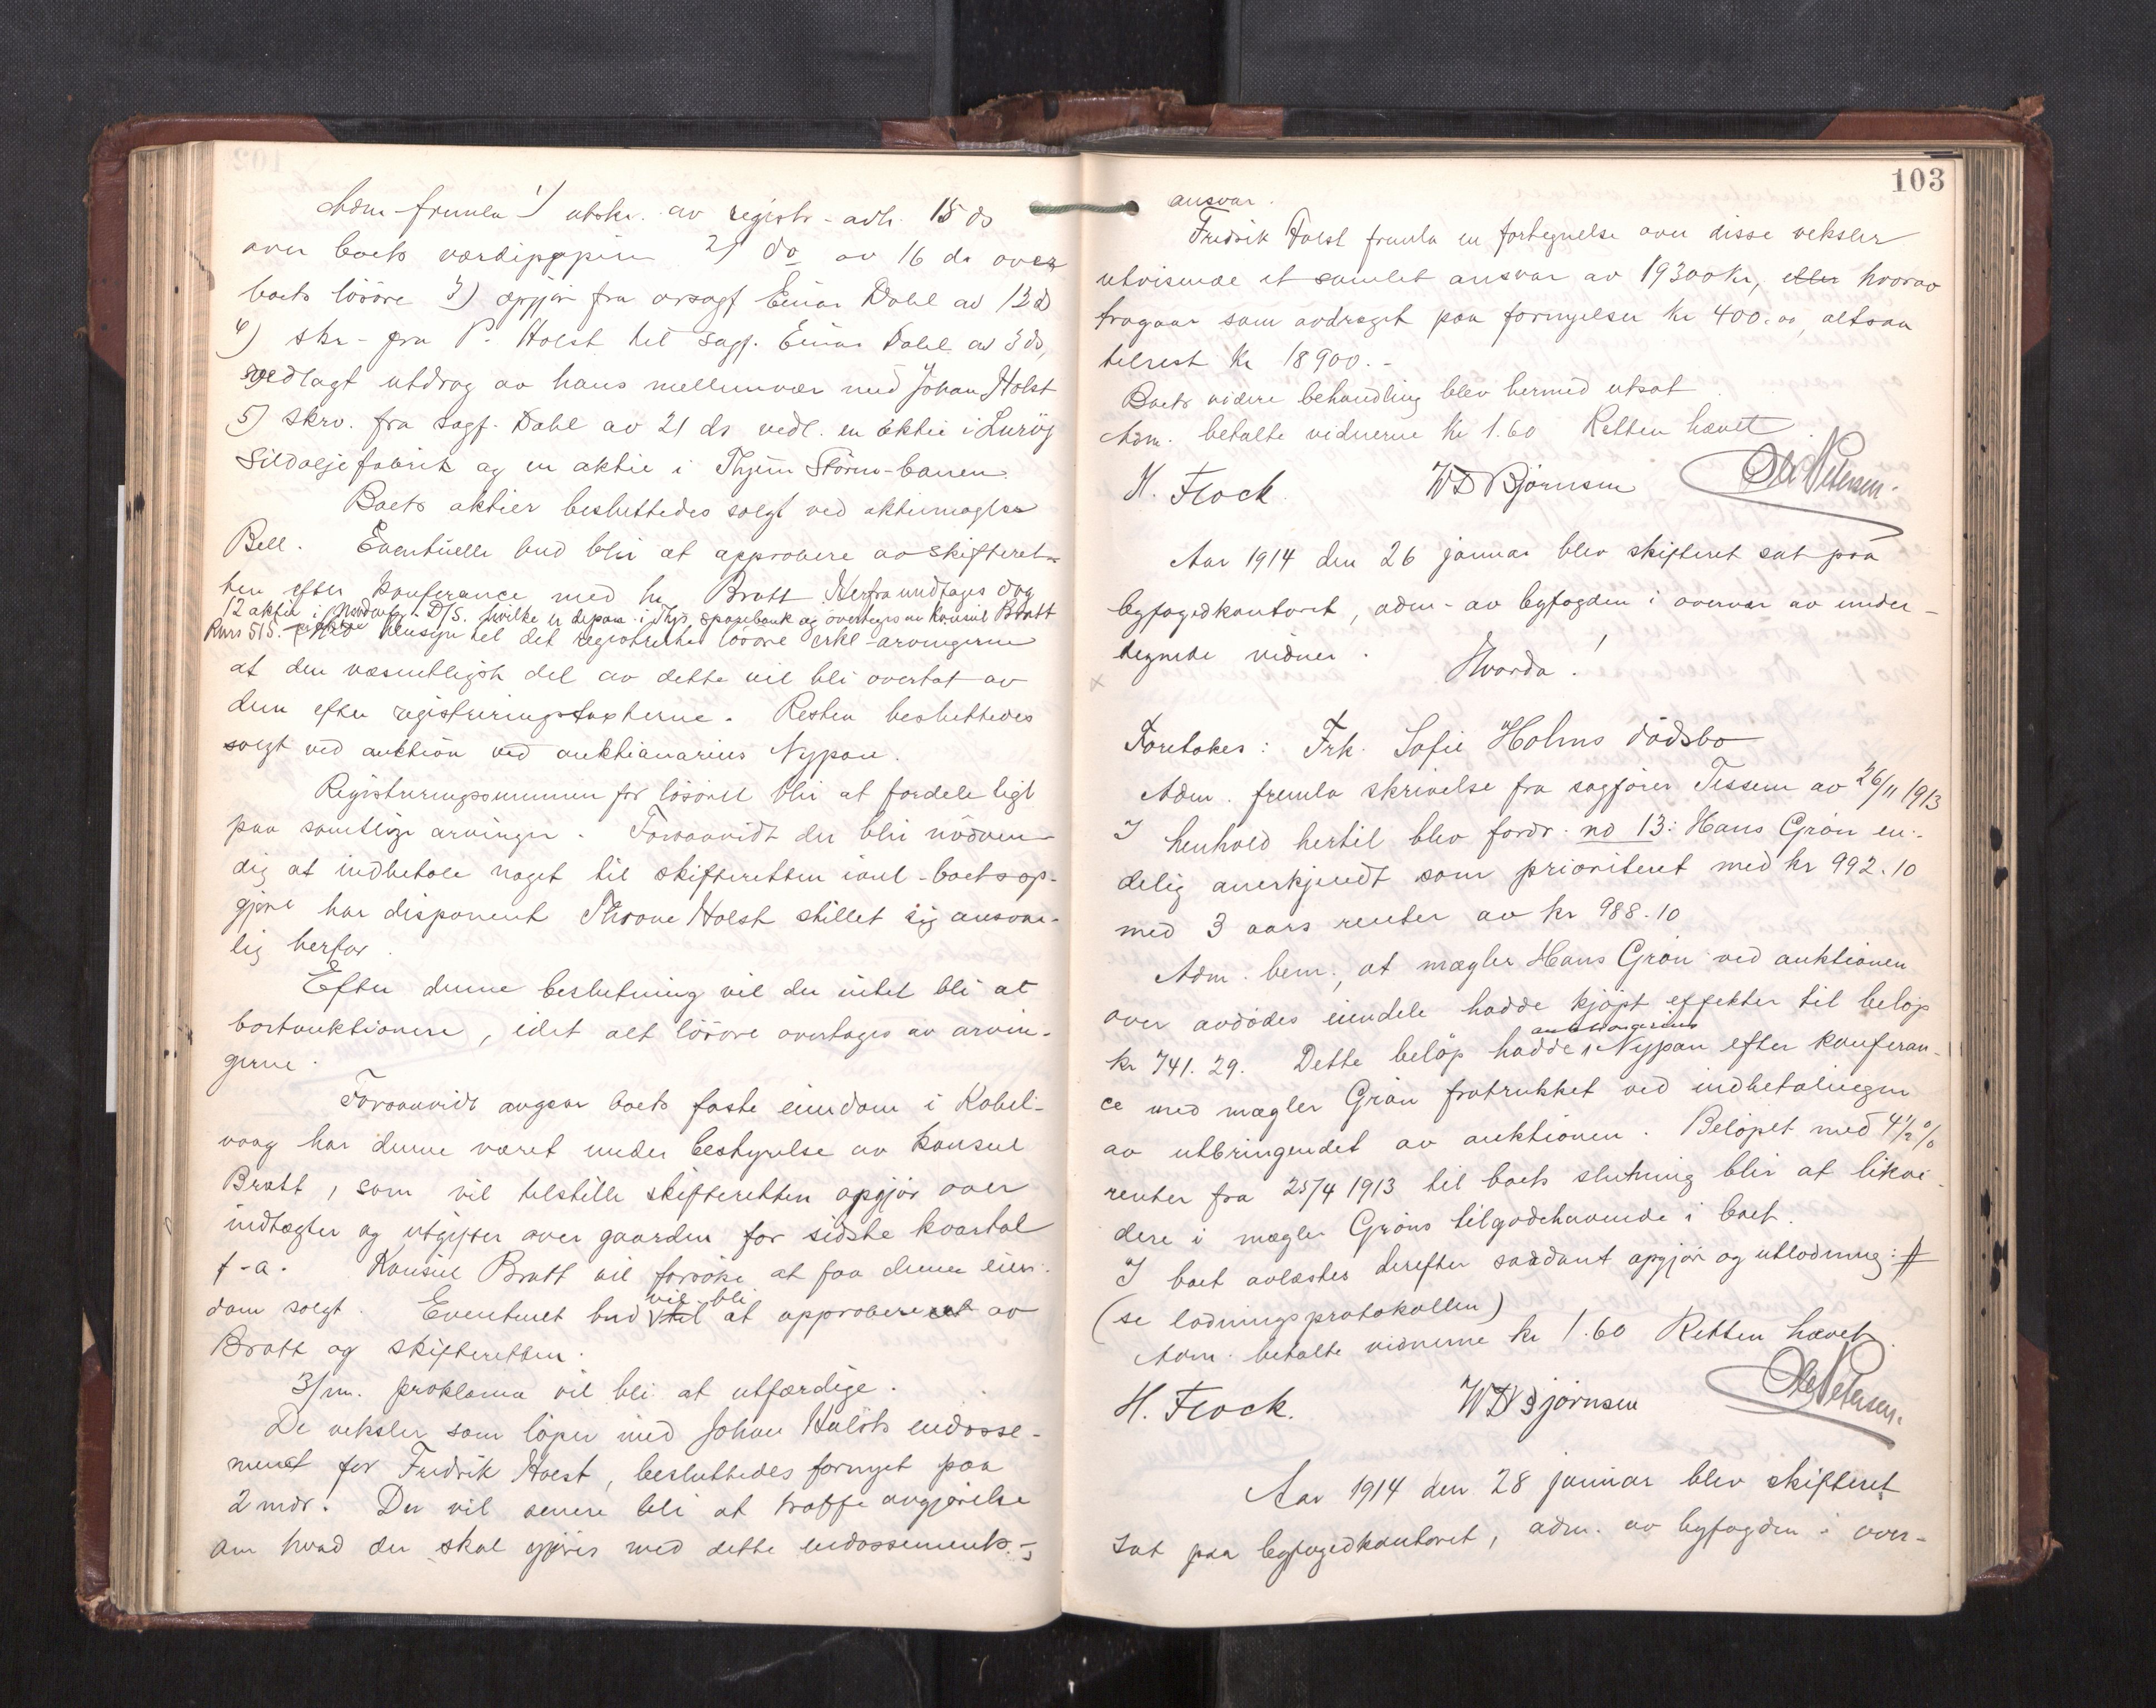 Adm fremla 1) utskr. av registr-adh. 15 ds
over boets værdipapirer 2) do av 16 ds over
boets lösöre 3) opgjör fra orsagf Einar Dahl av 12 ds
4) skr- fra P. Holst til sagf. Einar Dahl av 3 ds,
vedlagt utdrag av hans mellemvær med Johan Holst
5) skrv. fra sagf. Dahl av 21 ds vedl. en aktie i Luröy
Sildoljefabrik og en aktie i Thjem Stören-banen.
Boets aktier besluttedes solgt ved aktiemægler
Bell. Eventuelle bud blir at approbere av skifteret-
ten efter konferance med hr Bratt. Herfra undtages dog
12 aktier i D/S. hvilke er depon. i Thjs. sparebank og overtages av Konsul Bratt
Kurs 515. Med hensyn til det registrerte lösöre erkl- arvingerne
at den væsentligste del av dette vil bli overtat av
dem efter registreringstaxterne. Resten besluttedes
solgt ved auktion ved auktionarius Nypan.
Registreringssummen for lösöret blir at fordele likt
paa samtlige arvinger. Forsaavidt der blir nödven-
dig at indbetale noget til skifteretten ianl- boets op-
gjöre har disponent Throne Holst stillet sig ansvar-
lig herfor.
Efter denne beslutning vil der intet bli at
bortauktionere, idet alt lösöre overtages av arvin-
gerne.
Forsaavidt angaar boets faste eiendom i Kabel-
vaag har denne været under bestyrelse av konsul
Bratt, som vil tilstille skifteretten opgjör over
indtægter og utgifter over gaarden for sidste kvartal
f-a. Konsul Bratt vil forsöke at faa denne eien-
dom solgt. Eventuelt bud vil bli at approberes av
Bratt og skifteretten.
3/m. proklama vil bli at utfærdige.
De veksler som löper med Johan Holsts endosse-
ment for Fredrik Holst, besluttedes fornyet paa
2 mdr. Der vil senere bli at træffe avgjörelse
om hvad der skal gjöres med dette endossements-
103
ansvar.
Fredrik Holst fremla en fortegnelse over disse veksler
utvisende et samlet ansvar av 19300 kr, efter hvorav
fragaar som avdraget paa fornyelser kr 400.00, altsaa
tilrest kr 18900.-
Boets videre behandling blev hermed utsat.
Adm. betalte vidnerne kr 1.60 Retten hævet.
H. Flock. WD Bjørnsen Ole Petersen.
Aar 1914 den 26 januar blev skifteret sat paa
byfogedkontoret, adm- av byfogden i overvær av under-
tegnede vidner. Hvorda!
Foretokes: Frk. Sofie Holms dödsbo
Adm. fremla skrivelse fra sagförer Tessem av 26/11 1913
I henhold hertil blev fordr. no 13: Hans Grön en-
delig anerkjendt som prioritert med kr 992.10
med 3 aars renter av kr 988.10
Adm. bem., at mægler Hans Grön ved auktionen
over avdödes eiendele hadde kjöpt effekter til belöp
kr 741.29. Dette belöp hadde auktionarius Nypan efter konferan-
ce med mægler Grön fratrukket ved indbetalingen
av utbringendet av auktionen. Belöpet med 4½ %
renter fra 25/4 1913 til boets slutning blir at likvi-
dere i mægler Gröns tilgodehavende i boet.
I boet avlæstes derefter saadant opgjör og utlodning: #
(se lodningsprotokollen)
Adm. betalte vidnerne kr 1.60 Retten hævet.
H. Flock. WD Bjørnsen Ole Petersen.
Aar 1914 den 28 januar blev skifteret
sat paa byfogedkontoret, adm. av byfogden i over-